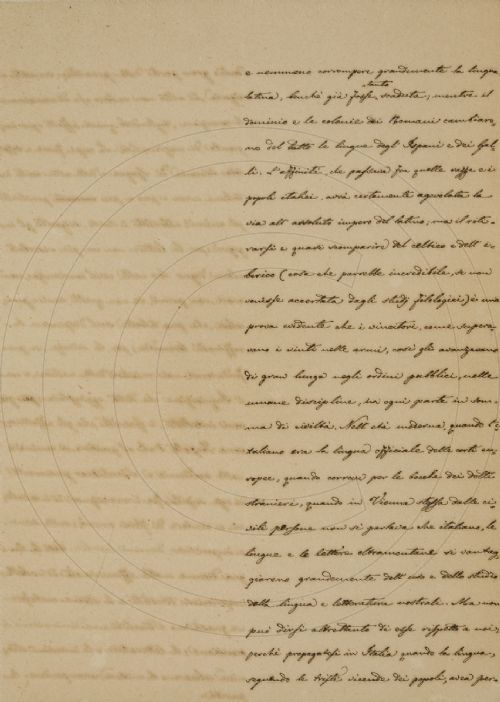 e nemmeno corrompere grandemente la lingua
latina, benché già fosse tanto scaduta; mentre il
dominio e le colonie dei Romani cambiaro-
no del tutto le lingue degl'Ispani e dei Gal-
li. L'affinità, che passava fra quelle razze e i
popoli italici, avrà certamente agevolata la
via all'assoluto impero del latino; ma il riti-
rarsi e quasi scomparire del celtico e dell'i-
berico (cosa che parrebbe incredibile, se non
venisse accertata dagli studj filologici) è una
prova evidente che i vincitori, come supera-
vano i vinti nelle armi, così gli avanzavano
di gran lunga negli ordini pubblici, nelle
umane discipline, in ogni parte in som-
ma di civiltà. Nell'età moderna, quando l'i-
taliano era la lingua officiale delle corti eu-
ropee, quando correva per le bocche dei dotti
stranieri, quando in Vienna stessa dalle ci-
vili persone non si parlava che italiano, le
lingue e le lettere oltramontane si vantag-
giarono grandemente dell'uso e dello studio
della lingua e letteratura nostrale. Ma non
può dirsi altrettanto di esse rispetto a noi,
perché propagatesi in Italia quando la lingua,
seguendo le tristi vicende dei popoli, avea per-